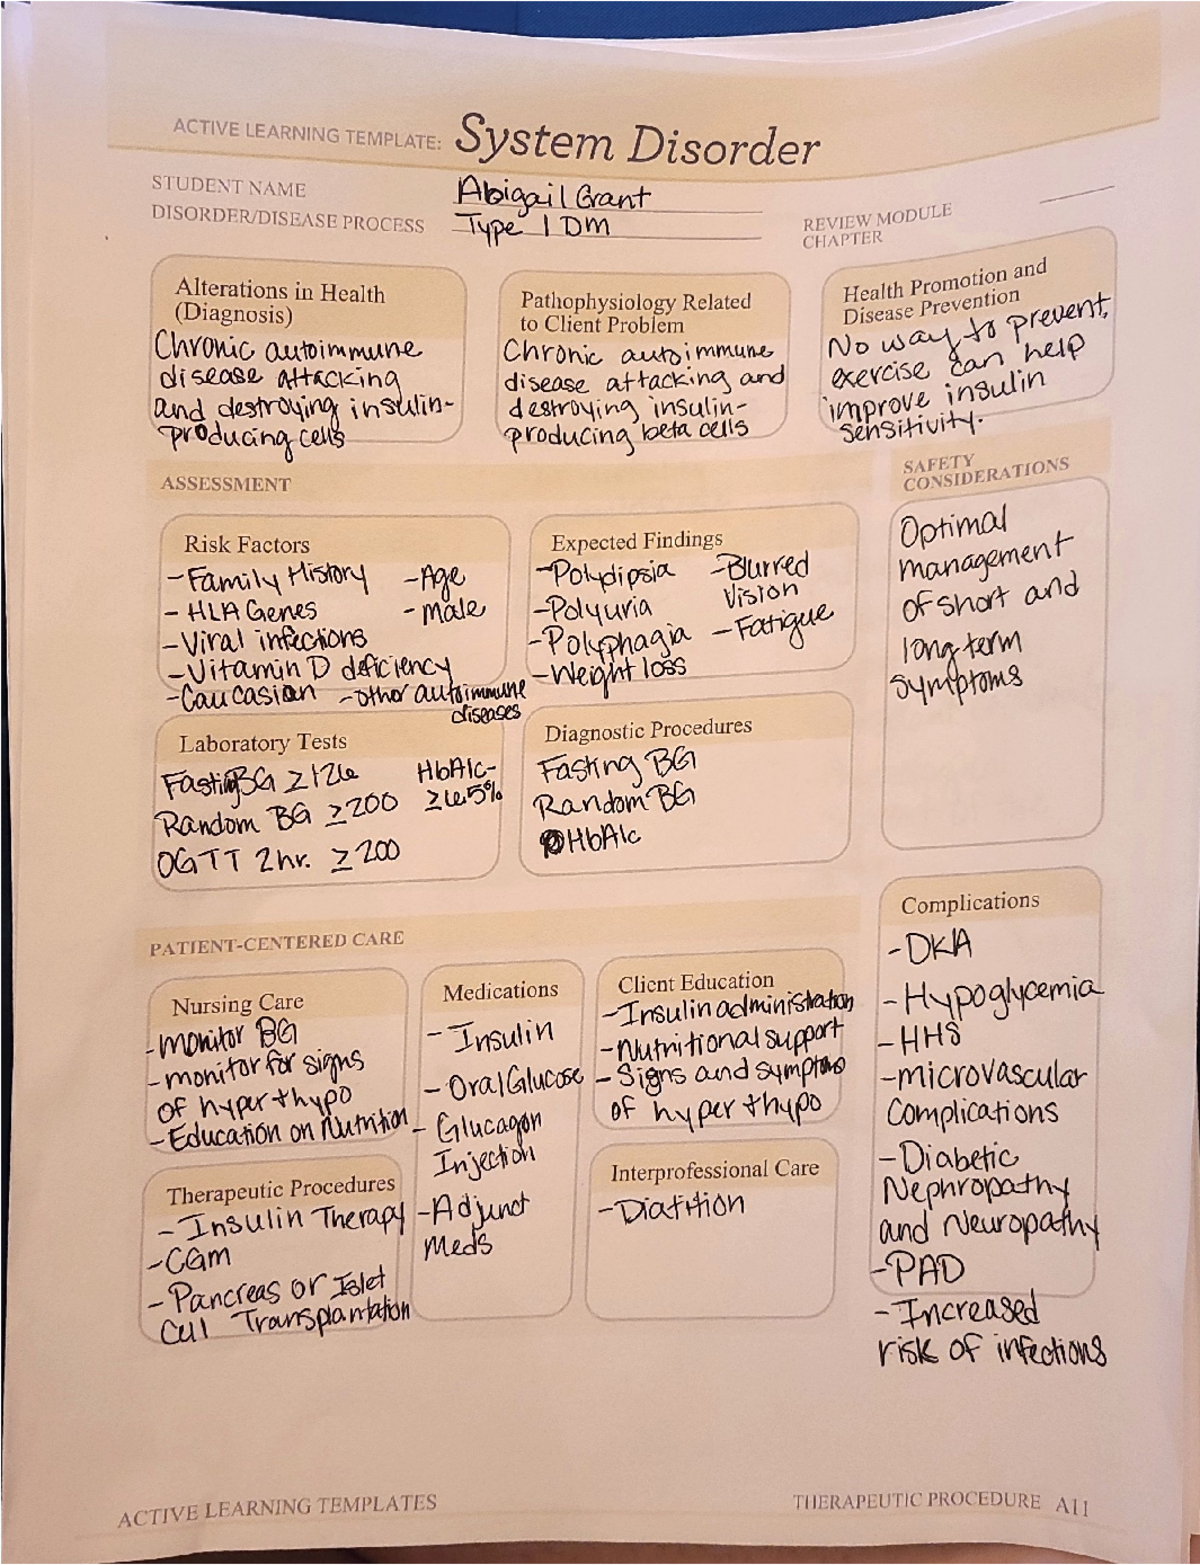 ACTIVE LEARNING TEMPLATE: System Disorder
STUDENT NAME Abigail Grant
DISORDER/DISEASE PROCESS Type 1 DM
REVIEW MODULE
CHAPTER
Alterations in Health
(Diagnosis)
Chronic autoimmune
disease attacking
and destroying insulin-
producing cells
Pathophysiology Related
to Client Problem
Chronic autoimmune
disease attacking and
destroying insulin-
producing beta cells
Health Promotion and
Disease Prevention
No way to prevent,
exercise can help
improve insulin
sensitivity.
ASSESSMENT
SAFETY
CONSIDERATIONS
Risk Factors
-Family History -Age
- HLA Genes -Male
-Viral infections
-Vitamin D deficiency
-Caucasian -other autoimmune
diseases
Expected Findings
-Polydipsia -Blurred
Vision
-Polyuria
-Polyphagia -Fatigue
-Weight loss
Optimal
management
of short and
long term
symptoms
Laboratory Tests
Fasting BG ≥126 HbA1c-
Random BG ≥200 ≥6.5%
OGTT 2hr. ≥200
Diagnostic Procedures
Fasting BG
Random BG
HbA1c
PATIENT-CENTERED CARE
Nursing Care
-monitor BG
-monitor for signs
of hyper + hypo
-Education on Nutrition
Medications
- Insulin
- Oral Glucose
- Glucagon
Injection
-Adjunct
Meds
Client Education
-Insulin administration
-Nutritional support
-Signs and symptoms
of hyper + hypo
Therapeutic Procedures
- Insulin Therapy
-CGM
- Pancreas or Islet
Cell Transplantation
Interprofessional Care
-Diatition
Complications
-DKA
-Hypoglycemia
-HHS
-microvascular
Complications
-Diabetic
Nephropathy
and Neuropathy
-PAD
-Increased
risk of infections
ACTIVE LEARNING TEMPLATES
THERAPEUTIC PROCEDURE A11